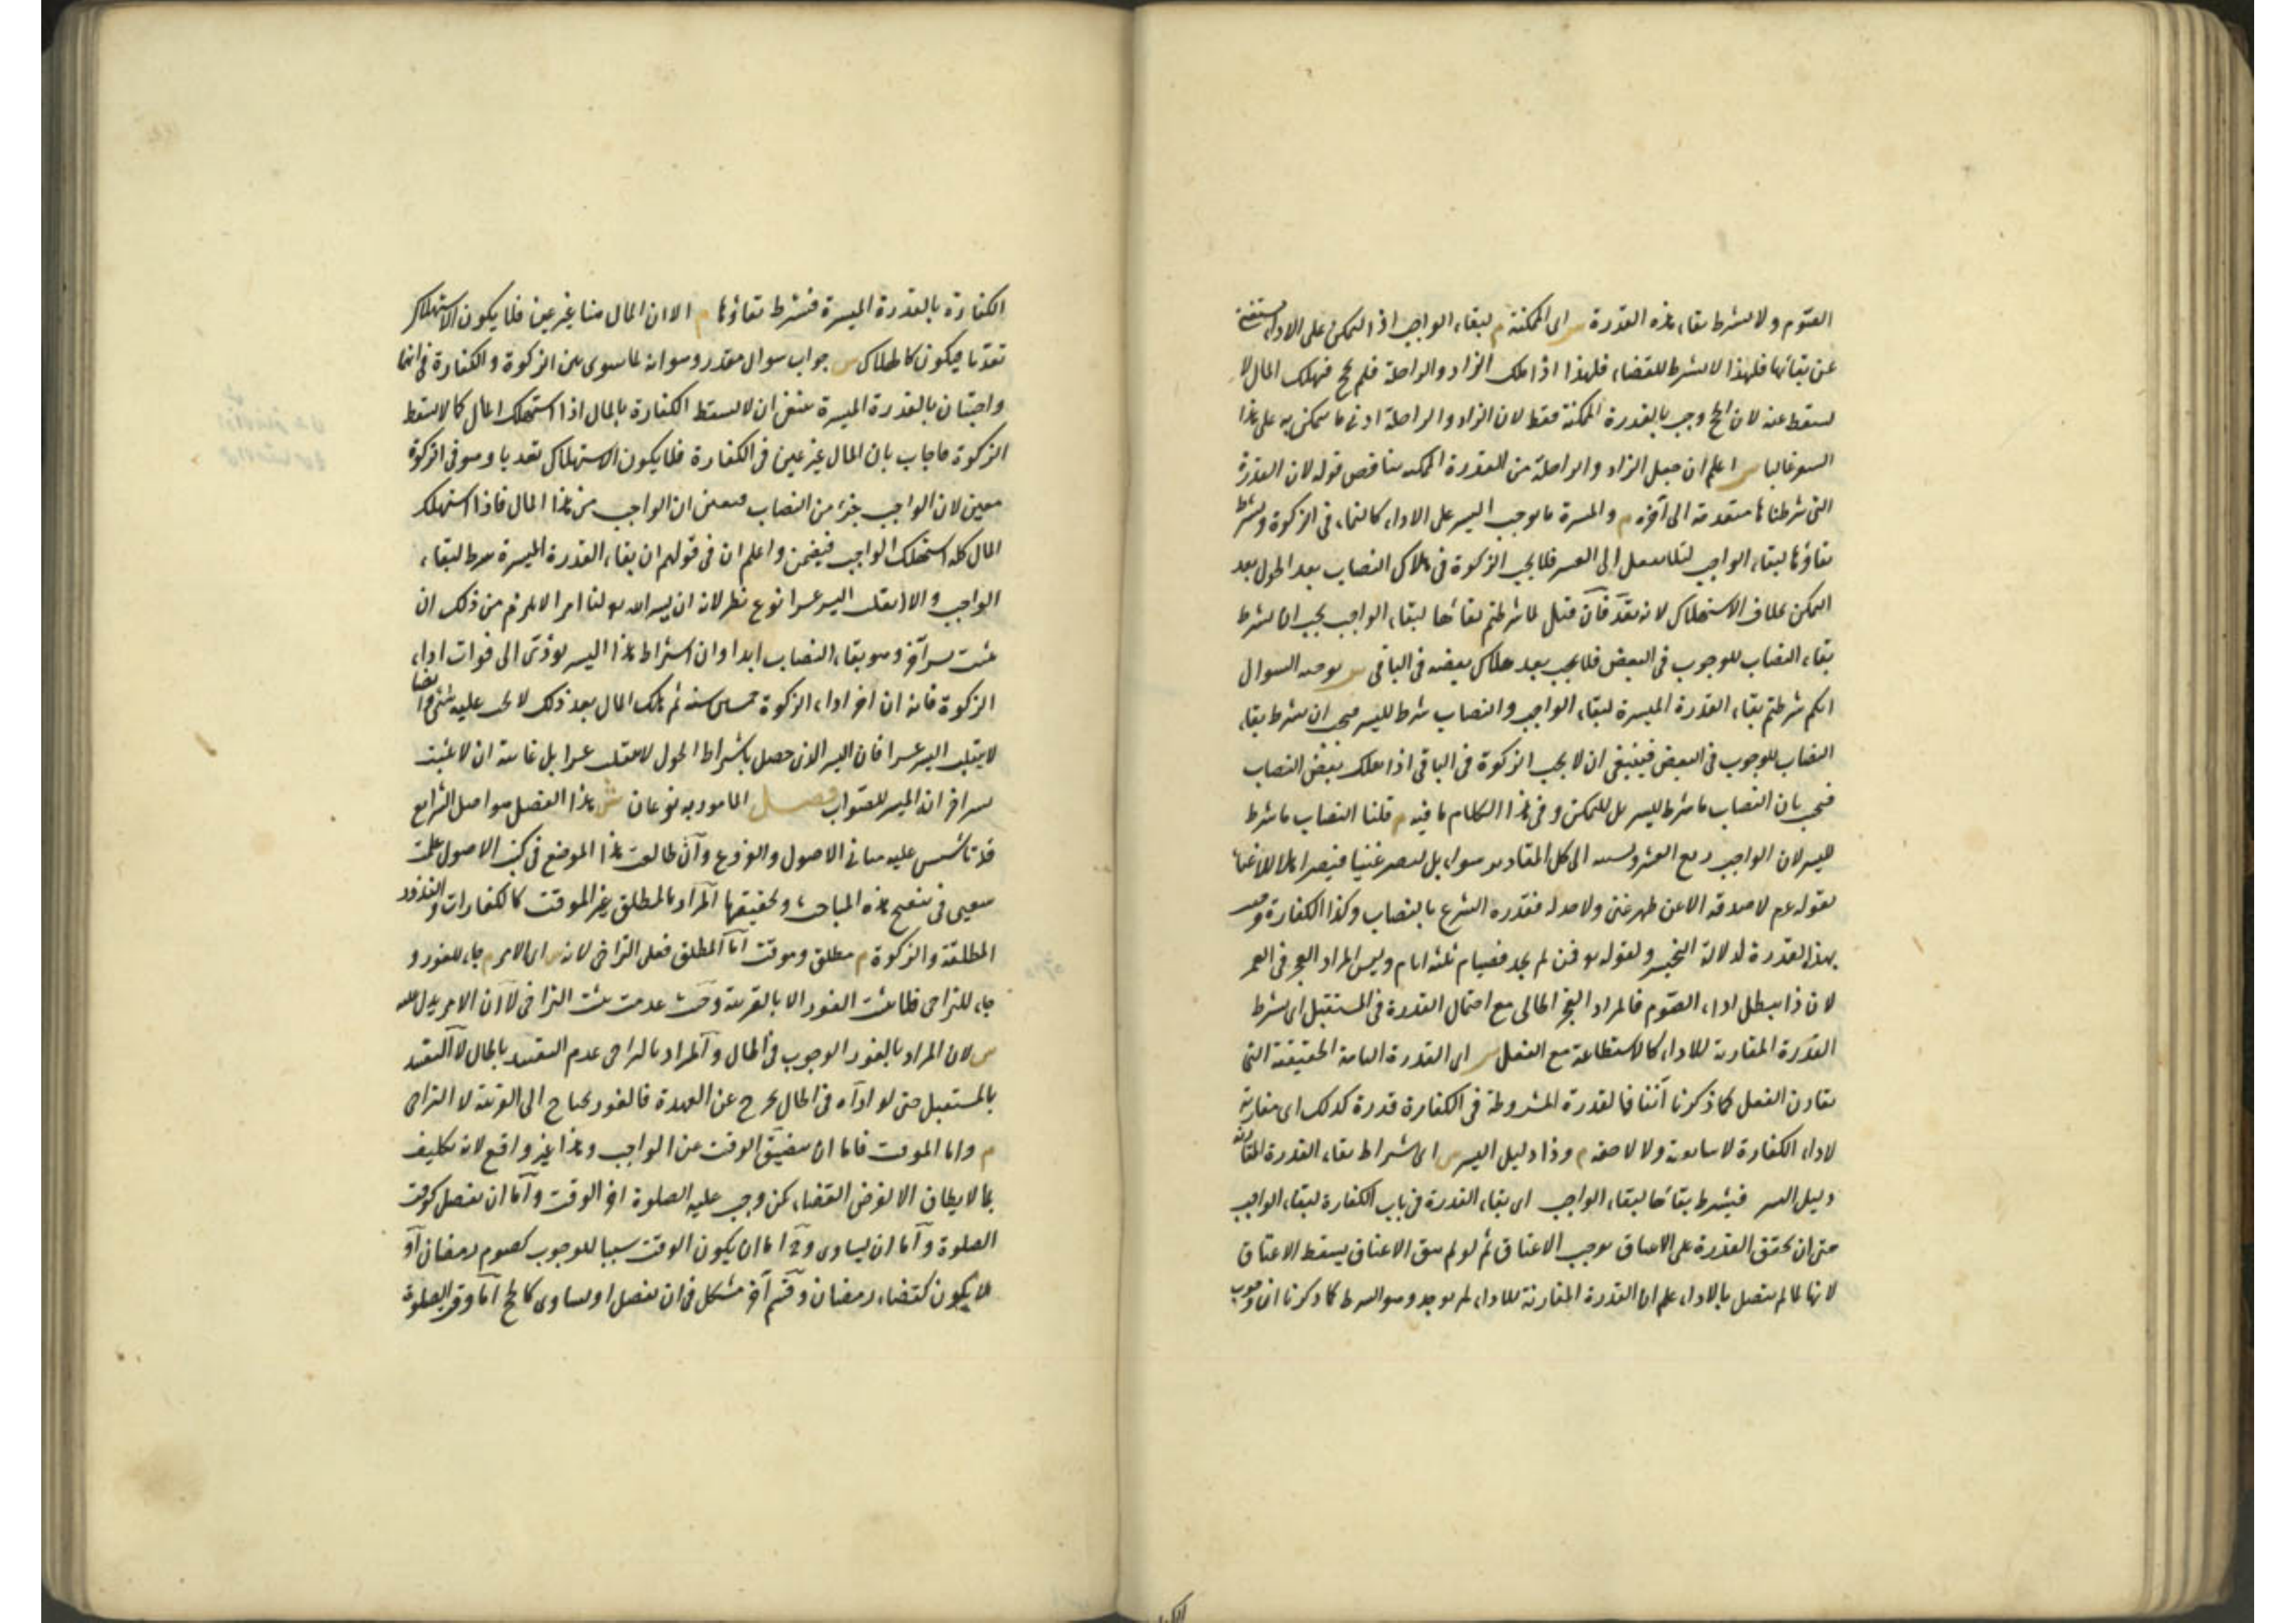 الصوم ولا يشترط بقاء هذه القدرة س اى الممكنة م لبقاء الواجب اذ التمكن على الاداء يستغنى
عن بقائها فلهذا لا يشترط للقضاء فلهذا اذا ملك الزاد والراحلة فلم يحج فهلك المال لا
يسقط عنه لان الحج وجب بالقدرة الممكنة فقط لان الزاد والراحلة ادنى ما يتمكن به على هذا
السفر غالبا س اعلم ان جعل الزاد والراحلة من القدرة الممكنة يناقض قوله لان القدرة
التى شرطناها متقدمة الى آخره م والميسرة ما يوجب اليسر على الاداء كالنماء فى الزكوة ويشترط
بقاؤها لبقاء الواجب لئلا ينقلب الى العسر فلا يجب الزكوة فى هلاك النصاب بعد الحول بعد
التمكن بخلاف الاستهلاك لانه تعد فان قيل لما شرطتم بقائها لبقاء الواجب يجب ان يشترط
بقاء النصاب للوجوب فى البعض فلا يجب بعد هلاك بعضه فى الباقى س توجيه السوال
انكم شرطتم بقاء القدرة الميسرة لبقاء الواجب والنصاب شرط لليسر فيجب ان يشترط بقاء
النصاب للوجوب فى البعض فينبغى ان لا يجب الزكوة فى الباقى اذا هلك بعض النصاب
فيجب بان النصاب ما شرط لليسر بل للتمكن وفى هذا الكلام ما فيه م قلنا النصاب ما شرط
لليسر لان الواجب ربع العشر ونسبته الى كل المقادير سواء بل ليصير غنيا فيصير اهلا للاغناء
لقوله عم لا صدقة الا عن ظهر غنى ولا حد له فقدره الشرع بالنصاب وكذا الكفارة وجبت
بهذه القدرة لدلالة التخيير ولقوله تع فمن لم يجد فصيام ثلثة ايام وليس المراد العجز فى العمر
لان ذا يبطل اداء الصوم فالمراد العجز الحالى مع احتمال القدرة فى المستقبل اى يشترط
القدرة المقارنة للاداء كالاستطاعة مع الفعل س اى القدرة التامة الحقيقية التى
تقارن الفعل كما ذكرنا آنفا فالقدرة المشروطة فى الكفارة قدرة كذلك اى مقارنة
لاداء الكفارة لا سابقة ولا لاحقة م وذا دليل اليسر س اى اشتراط بقاء القدرة المقارنة
دليل اليسر فيشترط بقائها لبقاء الواجب اى بقاء القدرة فى باب الكفارة لبقاء الواجب
حتى ان تحقق القدرة على الاعتاق يوجب الاعتاق ثم لو لم يبق الاعتاق يسقط الاعتاق
لانها لما لم يتصل بالاداء علم ان القدرة المقارنة للاداء لم توجد وهو الشرط كما ذكرنا ان وجوب
الكفارة بالقدرة الميسرة فيشترط بقاؤها م الا ان المال هنا غير عين فلا يكون الاستهلاك
تعديا فيكون كالهلاك س جواب سوال مقدر وهو انه لما سوى بين الزكوة والكفارة فى انهما
واجبتان بالقدرة الميسرة ينبغى ان لا يسقط الكفارة بالمال اذا استهلك المال كما لا يسقط
الزكوة فاجاب بان المال غير عين فى الكفارة فلا يكون الاستهلاك تعديا وهو فى الزكوة
معين لان الواجب جزء من النصاب فيتعين ان الواجب من هذا المال فاذا استهلك
المال كله استهلك الواجب فيضمن واعلم ان فى قولهم ان بقاء القدرة الميسرة شرط لبقاء
الواجب والا انقلب اليسر عسرا نوع نظر لانه ان يسر الله تع لنا امرا لا يلزم من ذلك ان
يثبت يسر آخر وهو بقاء النصاب ابدا وان اشتراط هذا اليسر يؤدى الى فوات اداء
الزكوة فانه ان اخر اداء الزكوة خمسين سنة ثم هلك المال بعد ذلك لا يجب عليه شئ وايضا
لا ينقلب اليسر عسرا فان اليسر الذى حصل باشتراط الحول لا ينقلب عسرا بل غايته ان لا يثبت
يسر آخر انه الميسر للصواب فصل المامور به نوعان ش هذا الفصل هو اصل الشرايع
قد تاسس عليه مبانى الاصول والفروع وان طالعت هذا الموضع فى كتب الاصول علمت
سعيى فى تنقيح هذه المباحث وتحقيقها المراد بالمطلق غير الموقت كالكفارات والنذور
المطلقة والزكوة م مطلق وموقت اما المطلق فعلى التراخى لانه س اى الامر م جاء للفور و
جاء للتراخى فلا يثبت الفور الا بالقرينة وحيث عدمت يثبت التراخى لا ان الامر يدل عليه
س لان المراد بالفور الوجوب فى الحال والمراد بالتراخى عدم التقييد بالحال لا التقييد
بالمستقبل حتى لو اداه فى الحال يخرج عن العهدة فالفور يحتاج الى القرينة لا التراخى
م واما الموقت فاما ان يتضيق الوقت عن الواجب وهذا غير واقع لانه تكليف
بما لا يطاق الا لغرض القضاء كمن وجب عليه الصلوة اخر الوقت واما ان يفضل كوقت
الصلوة واما ان يساوى وح اما ان يكون الوقت سببا للوجوب كصوم رمضان او
لا يكون كقضاء رمضان وقسم آخر مشكل فى ان يفضل او يساوى كالحج اما وقت الصلوة